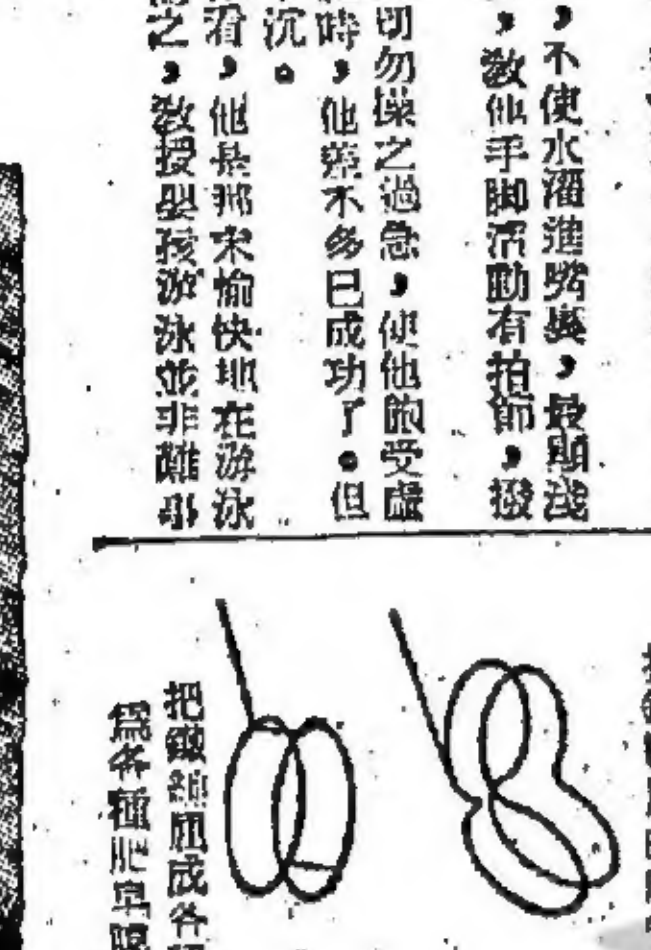 ，不使水灌進嘴裏，最期淺
，教他手脚活動有拍節，撥
切勿操之過急，使他飽受虛
時，他差不多已成功了。但
沉。
看，他是那末愉快地在游泳
之，教授嬰孩游泳並非難事
把鐵線屈成各
爲各種肥皂